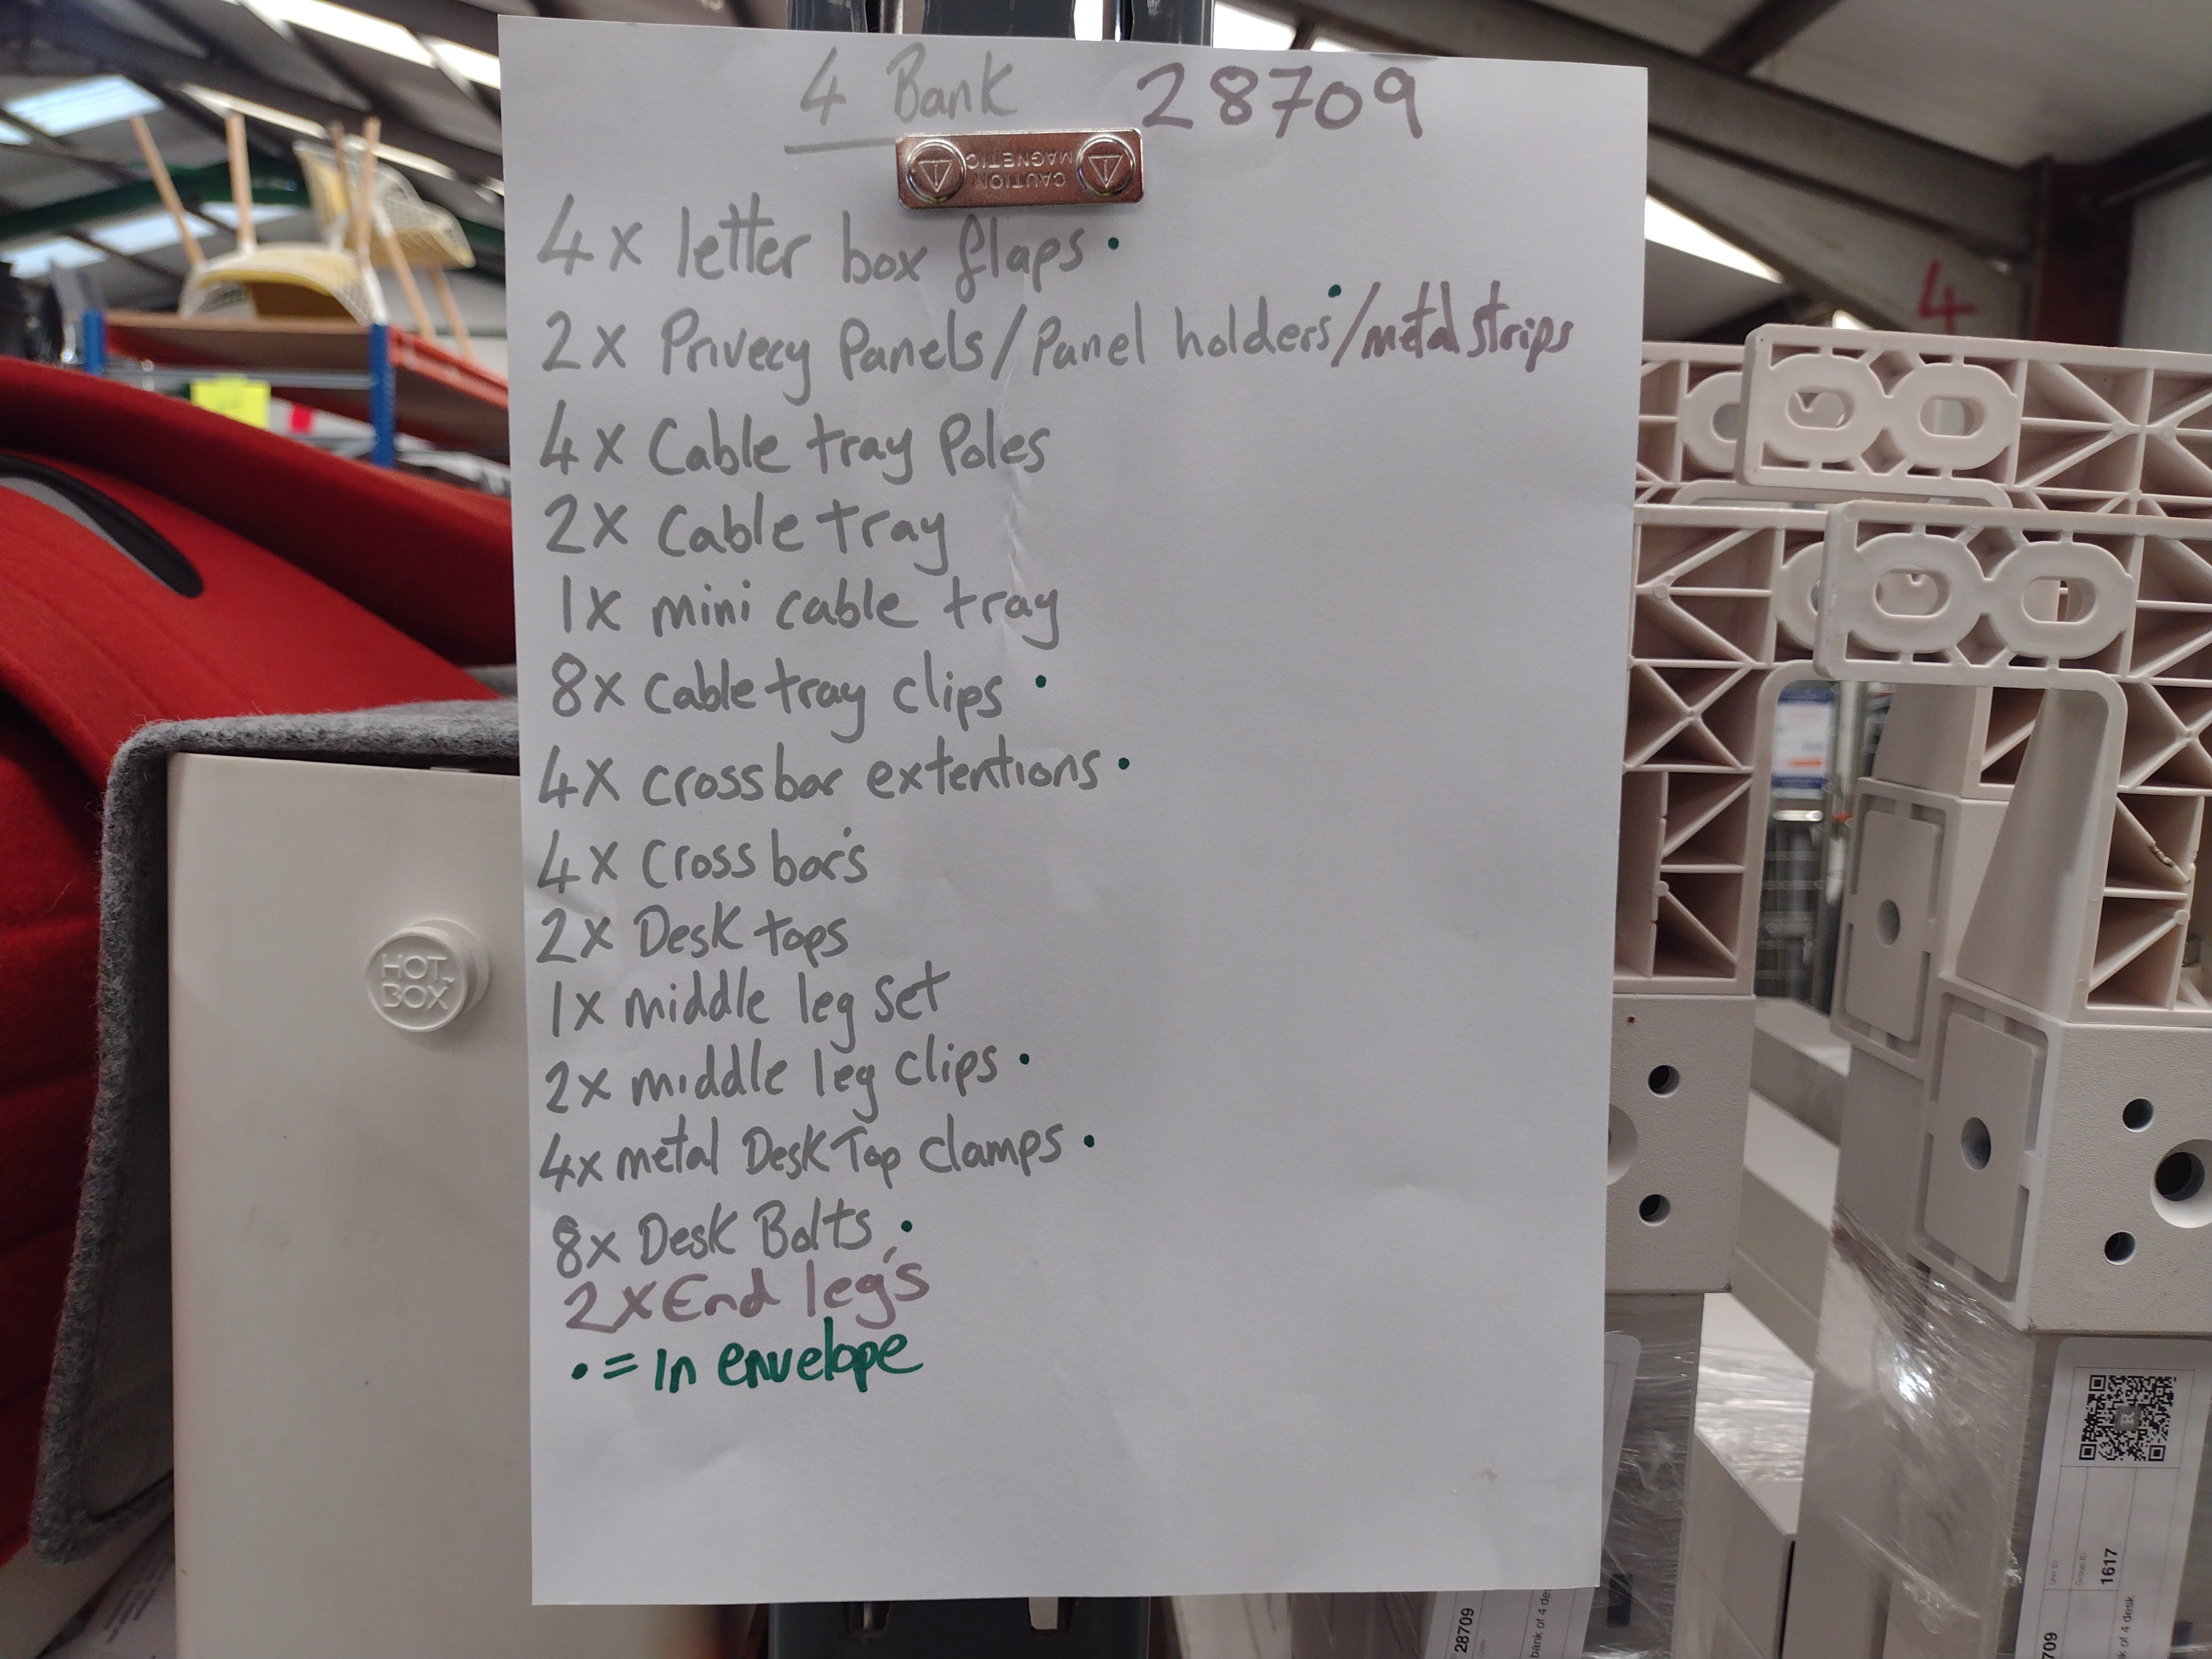 4 Bank 28709
CAUTION
MAGNETIC
4x letter box flaps •
2x Privecy Panels/Panel holders•/metal strips
4x Cable tray Poles
2x Cable tray
1x mini cable tray
8x Cable tray clips •
4x crossbar extentions •
4x Cross bar's
2x Desk tops
1x middle leg set
2x middle leg clips •
4x metal Desk Top clamps •
8x Desk Bolts •
2x End leg's
• = In envelope
HOT
BOX
4
28709
bank of 4
1617
Group ID
709
of 4 desk